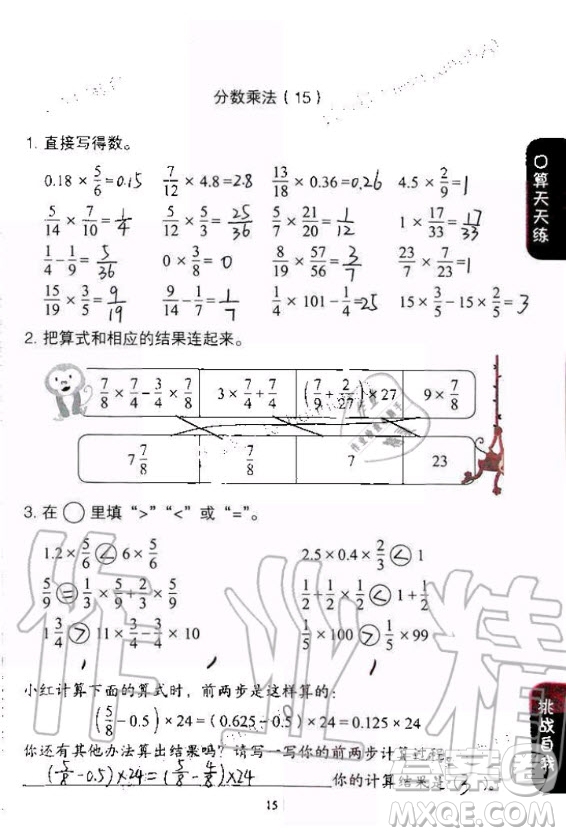 分数乘法(15)
1. 直接写得数。
0.18×5/6=0.15 7/12×4.8=2.8 13/18×0.36=0.26 4.5×2/9=1
5/14×7/10=1/4 5/12×5/3=25/36 5/7×21/20=1/12 1×17/33=17/33
1/4-1/9=5/36 0×3/8=0 8/19×57/56=3/7 23/7×7/23=1
15/19×3/5=9/19 1/4×101-1/4=25 15×3/5-15×2/5=3
2. 把算式和相应的结果连起来。
7/8×7/4-3/4×7/8 3×7/4+7/4 (7/9+2/27)×27 9×7/8
7 7/8 7/8 7 23
3. 在○里填“>”“<”或“=”。
1.2×5/6<6×5/6 2.5×0.4×2/3<1
5/9=1/3×5/9+2/3×5/9 1/2+1/2×1/2<1+1/2
1 3/4>11×3/4-3/4×10 1/5×100>1/5×99
小红计算下面的算式时,前两步是这样算的:
(5/8-0.5)×24=(0.625-0.5)×24=0.125×24
你还有其他办法算出结果吗?请写一写你的前两步计算过程。
(5/8-0.5)×24=(5/8-4/8)×24 你的计算结果是3。
15
算天天练
挑战自我
作业精
答案